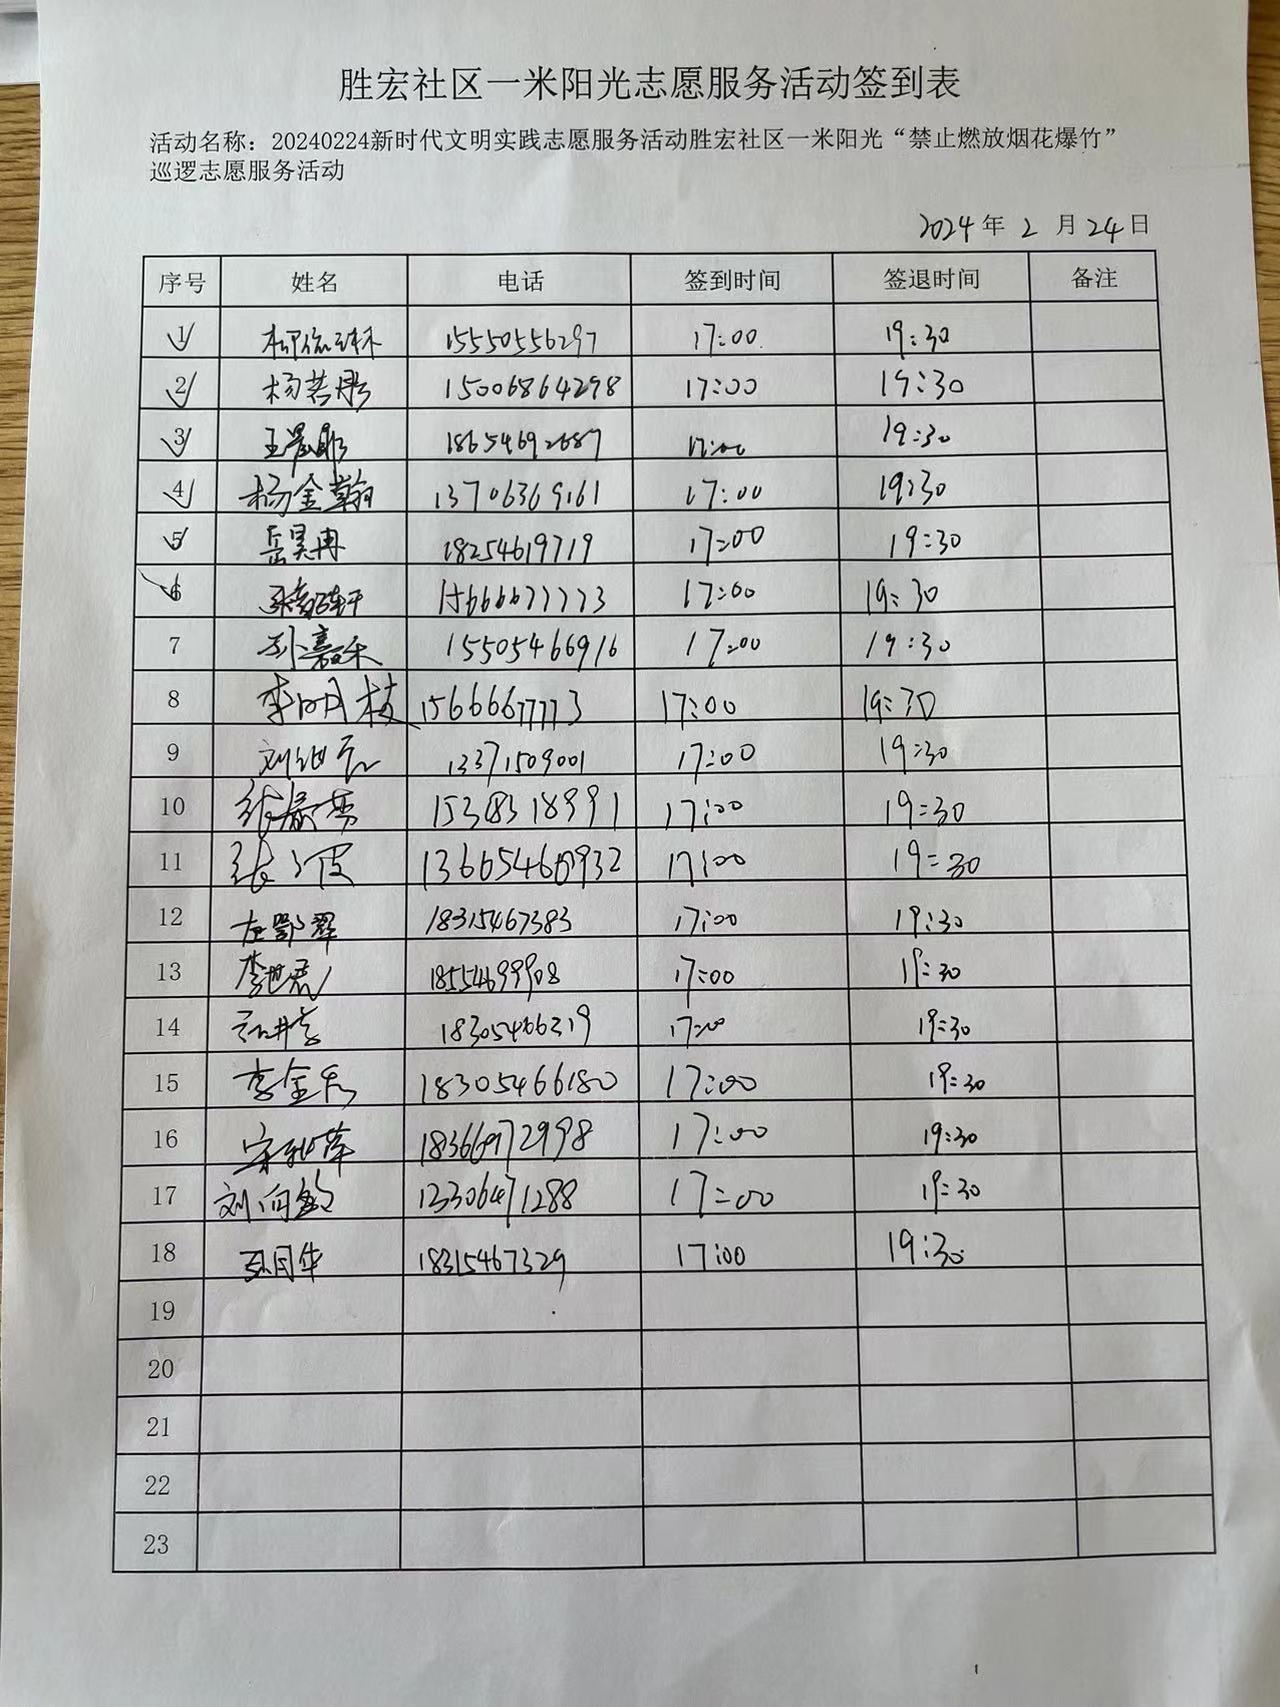 胜宏社区一米阳光志愿服务活动签到表
活动名称：20240224新时代文明实践志愿服务活动胜宏社区一米阳光“禁止燃放烟花爆竹”
巡逻志愿服务活动
2024年 2 月 24日
序号 姓名 电话 签到时间 签退时间 备注
1 15550556297 17:00 19:30
2 杨若彤 15006864298 17:00 19:30
3 18654692687 17:00 19:30
4 杨金翰 13706369161 17:00 19:30
5 岳昊冉 18254619719 17:00 19:30
6 15666677773 17:00 19:30
7 孙嘉禾 15505466916 17:00 19:30
8 李明枝 15666677773 17:00 19:30
9 13371509001 17:00 19:30
10 15383318991 17:00 19:30
11 17:00 19:30
12 18315467383 17:00 19:30
13 李世君 17:00 19:30
14 18305466219 17:00 19:30
15 18305466180 17:00 19:30
16 17:00 19:30
17 刘向敏 13306471288 17:00 19:30
18 18315467329 17:00 19:30
19
20
21
22
23